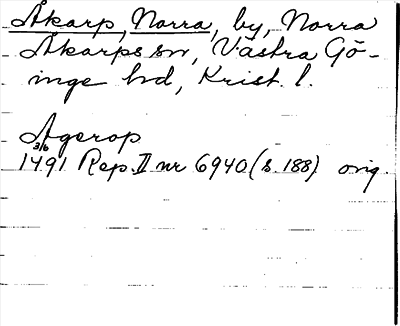 Åkarp, Norra, by, Norra
Åkarps sn, Västra Gö-
inge hd, Krist. l.
Agerop
3/6
1491 Rep. II nr 6940 (s. 188) orig.